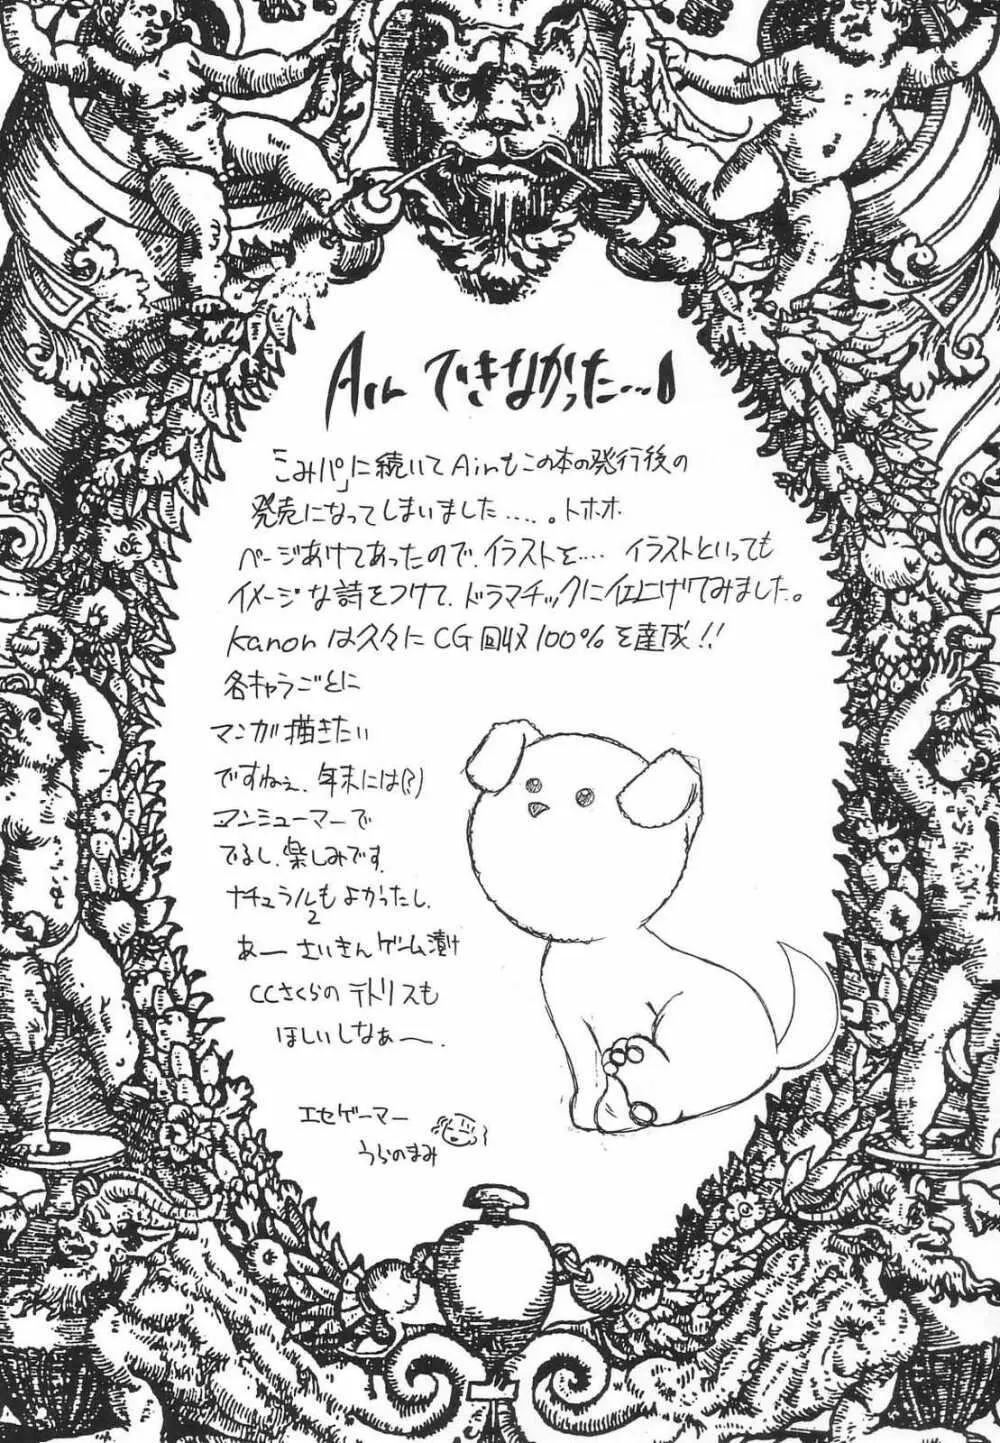 Air できなかった…
「こみパ」に続いてAirもこの本の発行後の
発売になってしまいました….。トホホ
ページあけてあったので、イラストを… イラストといっても
イメージな詩をつけて、ドラマチックに仕上げてみました。
Kanonは久々にCG回収100%を達成!!
各キャラごとに
マンガ描きたい
ですねぇ、年末には(?)
マンミューマーで
でるし、楽しみです。
ナチュラル2もよかったし、
あー さいきんゲーム漬け
CCさくらのテトリスも
ほしいしなぁ〜。
エセゲーマー
うらのまみ